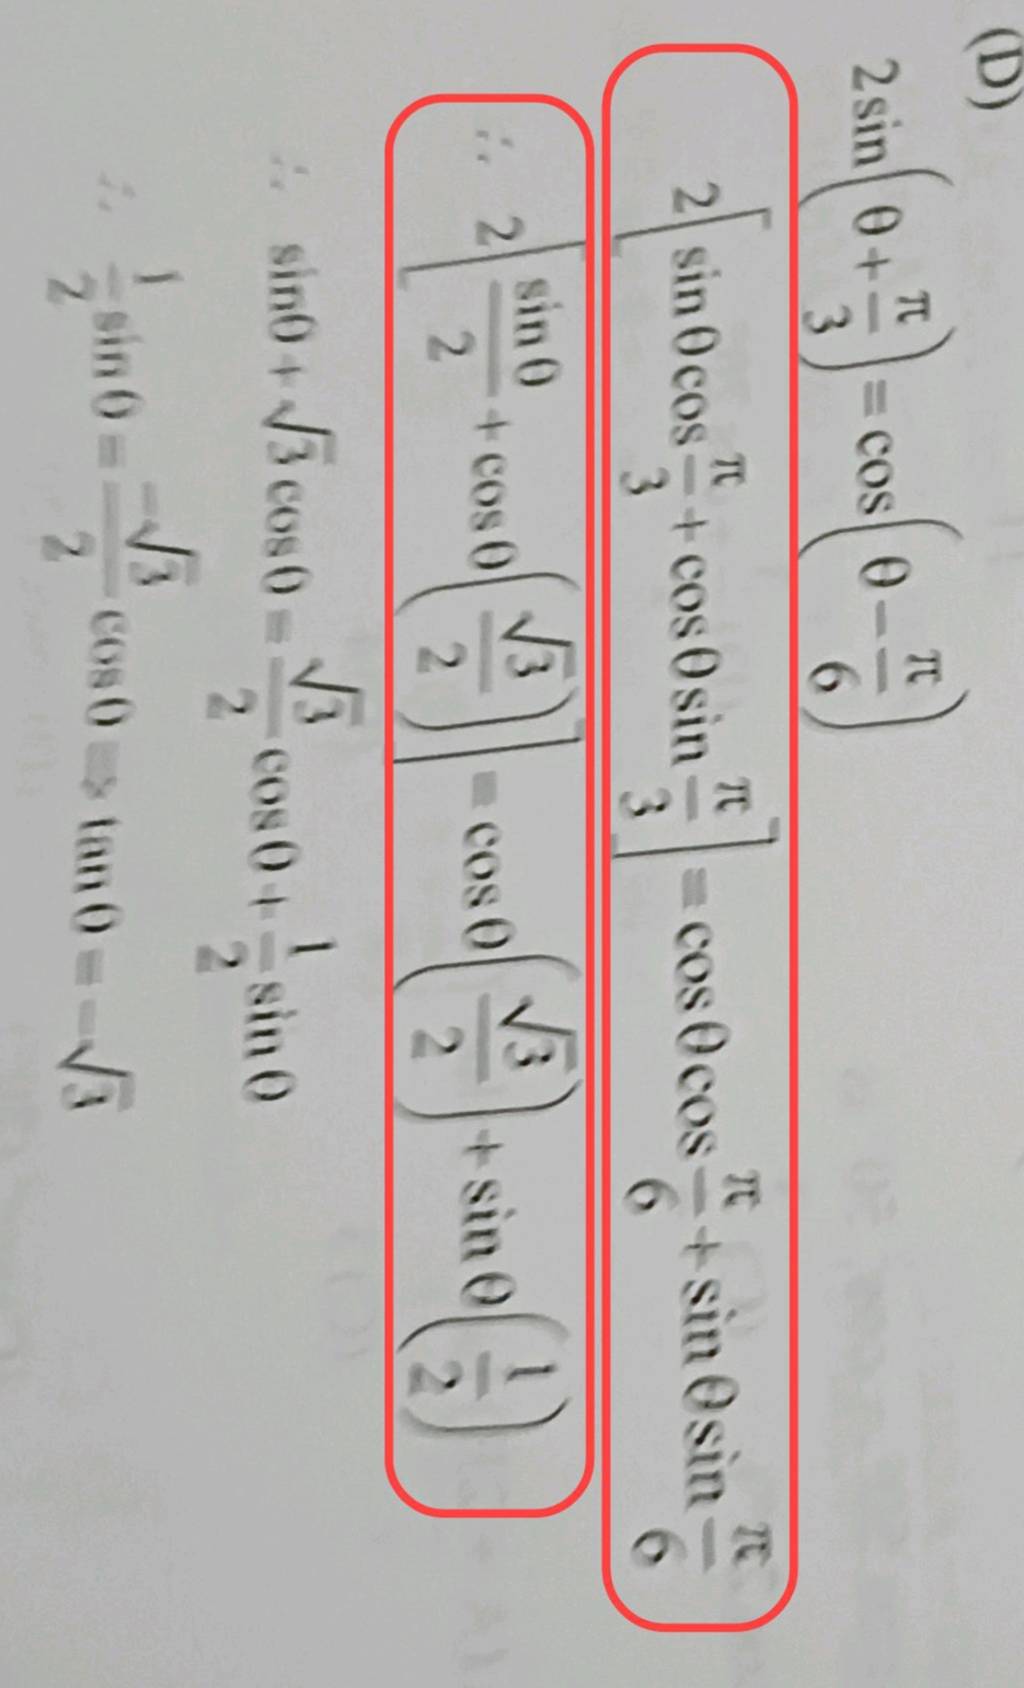 (D)
2sin(θ + π/3) = cos(θ − π/6)
2[sinθcos π/3 + cosθsin π/3] = cosθcos π/6 + sinθsin π/6
∴ 2[sinθ/2 + cosθ(√3/2)] = cosθ(√3/2) + sinθ(1/2)
∴ sinθ + √3cosθ = √3/2 cosθ + 1/2 sinθ
∴ 1/2 sinθ = −√3/2 cosθ ⇒ tanθ = −√3